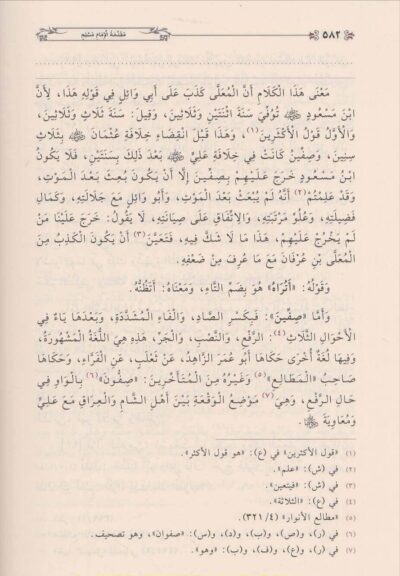 ٥٨٢
مُقَدِّمَةُ الإِمَامِ مُسْلِمٍ
مَعْنَى هَذَا الْكَلَامِ أَنَّ الْمُعَلَّى كَذَبَ عَلَى أَبِي وَائِلٍ فِي قَوْلِهِ هَذَا، لِأَنَّ
ابْنَ مَسْعُودٍ ﷺ تُوُفِّيَ سَنَةَ اثْنَتَيْنِ وَثَلَاثِينَ، وَقِيلَ: سَنَةَ ثَلَاثٍ وَثَلَاثِينَ،
وَالْأَوَّلُ قَوْلُ الْأَكْثَرِينَ(١)، وَهَذَا قَبْلَ انْقِضَاءِ خِلَافَةِ عُثْمَانَ ﷺ بِثَلَاثِ
سِنِينَ، وَصِفِّينُ كَانَتْ فِي خِلَافَةِ عَلِيٍّ ﷺ بَعْدَ ذَلِكَ بِسَنَتَيْنِ، فَلَا يَكُونُ
ابْنُ مَسْعُودٍ خَرَجَ عَلَيْهِمْ بِصِفِّينَ إِلَّا أَنْ يَكُونَ بُعِثَ بَعْدَ الْمَوْتِ،
وَقَدْ عَلِمْتُمْ(٢) أَنَّهُ لَمْ يُبْعَثْ بَعْدَ الْمَوْتِ، وَأَبُو وَائِلٍ مَعَ جَلَالَتِهِ، وَكَمَالِ
فَضِيلَتِهِ، وَعُلُوِّ مَرْتَبَتِهِ، وَالِاتِّفَاقِ عَلَى صِيَانَتِهِ، لَا يَقُولُ: خَرَجَ عَلَيْنَا مَنْ
لَمْ يَخْرُجْ عَلَيْهِمْ، هَذَا مَا لَا شَكَّ فِيهِ، فَتَعَيَّنَ(٣) أَنْ يَكُونَ الْكَذِبُ مِنَ
الْمُعَلَّى بْنِ عُرْفَانَ مَعَ مَا عُرِفَ مِنْ ضَعْفِهِ.
وَقَوْلُهُ: «أَتُرَاهُ» هُوَ بِضَمِّ التَّاءِ، وَمَعْنَاهُ: أَتَظُنُّهُ.
وَأَمَّا «صِفِّينَ»: فَبِكَسْرِ الصَّادِ، وَالْفَاءِ الْمُشَدَّدَةِ، وَبَعْدَهَا يَاءٌ فِي
الْأَحْوَالِ الثَّلَاثِ(٤): الرَّفْعِ، وَالنَّصْبِ، وَالْجَرِّ، هَذِهِ هِيَ اللُّغَةُ الْمَشْهُورَةُ،
وَفِيهَا لُغَةٌ أُخْرَى حَكَاهَا أَبُو عُمَرَ الزَّاهِدُ، عَنْ ثَعْلَبٍ، عَنِ الْفَرَّاءِ، وَحَكَاهَا
صَاحِبُ «الْمَطَالِعِ»(٥) وَغَيْرُهُ مِنَ الْمُتَأَخِّرِينَ: «صِفُّونَ»(٦) بِالْوَاوِ فِي
حَالِ الرَّفْعِ، وَهِيَ(٧) مَوْضِعُ الْوَقْعَةِ بَيْنَ أَهْلِ الشَّامِ وَالْعِرَاقِ مَعَ عَلِيٍّ
وَمُعَاوِيَةَ
(١) «قول الأكثرين» في (ع): «هو قول الأكثر».
(٢) في (ش): «علم».
(٣) في (ش): «فيتعين».
(٤) في (ع): «الثلاثة».
(٥) «مطالع الأنوار» (٤/ ٣٢١).
(٦) في (ر)، و(ص)، و(ب)، و(د)، و(س): «صفوان»، وهو تصحيف.
(٧) في (ر)، و(ع)، و(ف)، و(ب): «وهو».